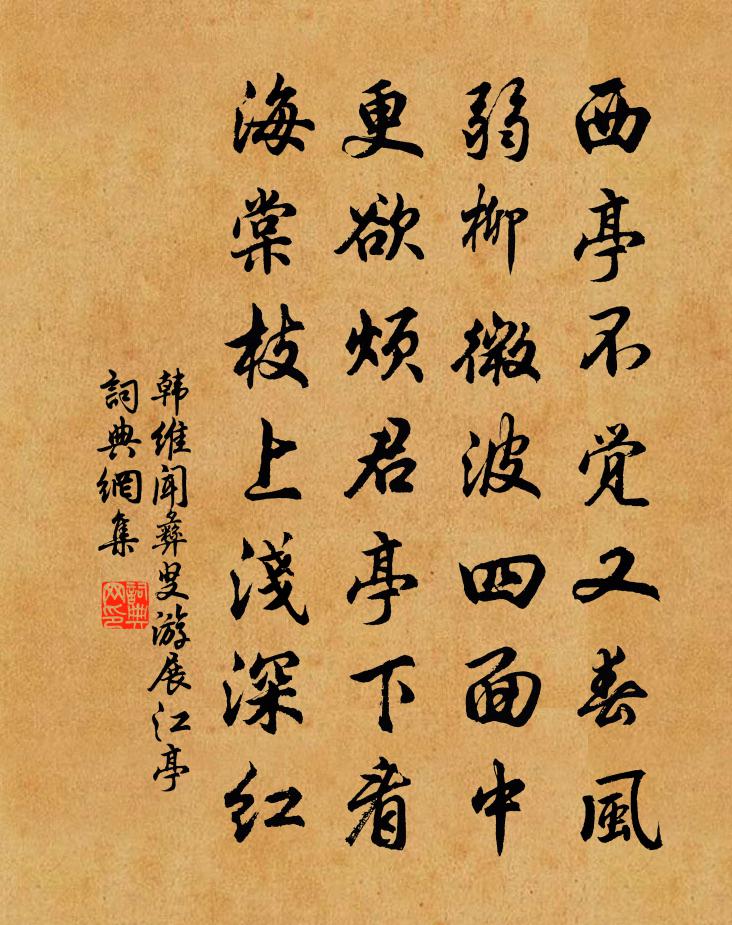 西亭不觉又春風
弱柳微波四面中
更欲烦君亭下看
海棠枝上淺深红
韩维闻彝叟游展江亭
詞典網集
詞典网印